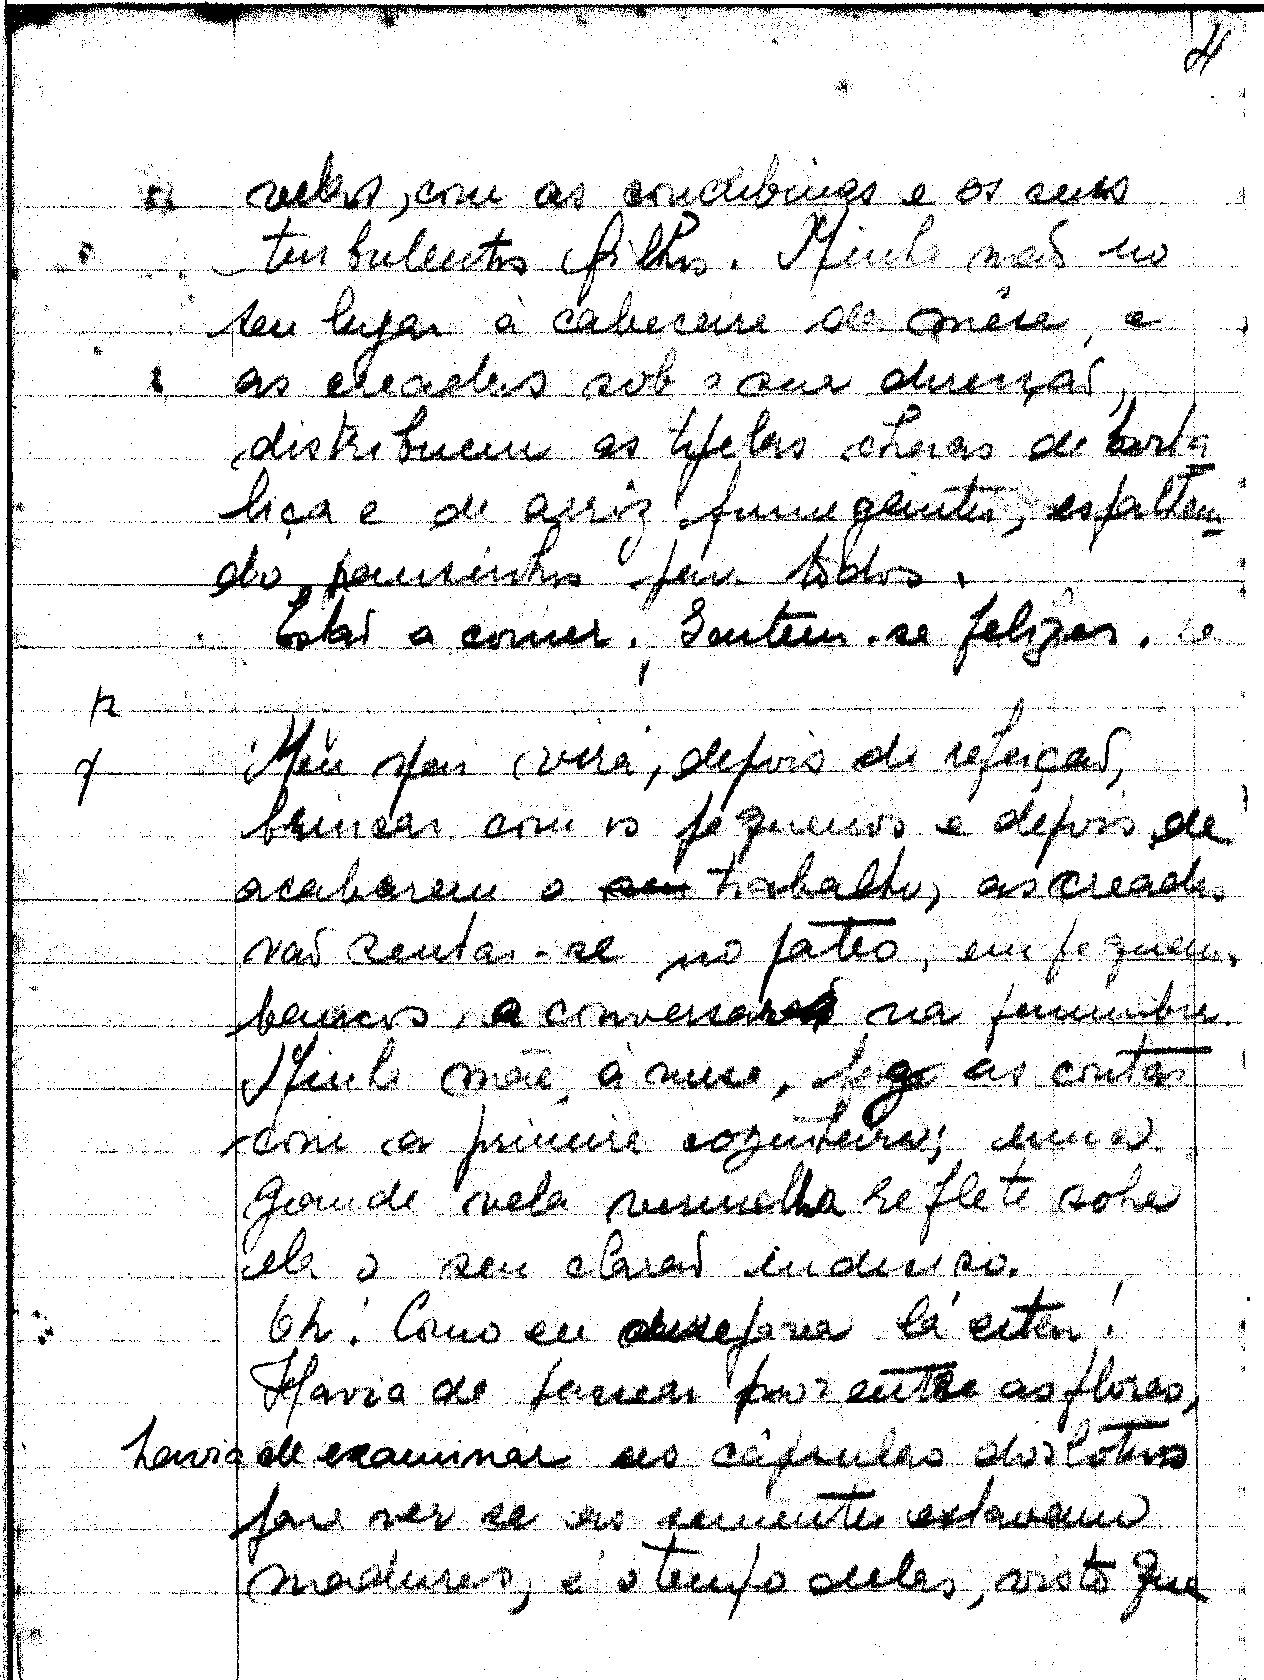 velas, com as concubinas e os seus
turbulentos filhos. Minha mãe no
seu lugar à cabeceira da mêsa, e
as creadas sob a sua direcção,
distribuem as tijelas cheias de horta
liça e de arroz fumegantes, espalhan-
do pausinhos para todos.
Estão a comer. Sentem-se felizes.
Meu pai virá, depois da refeição,
brincar com os pequenos e depois de
acabarem o seu trabalho, as creadas
vão sentar-se no páteo, em pequenos
bancos, a conversar na penumbra.
Minha mãe, à mesa, faz as contas
com a primeira cozinheira; uma
grande vela vermelha reflete sobre
ela o seu clarão indeciso.
Oh! Como eu desejaria lá estar!
Havia de passear por entre as flores,
havia de examinar as cápsulas dos lótus
para ver se as sementes estavam
maduras, é o tempo delas, visto que